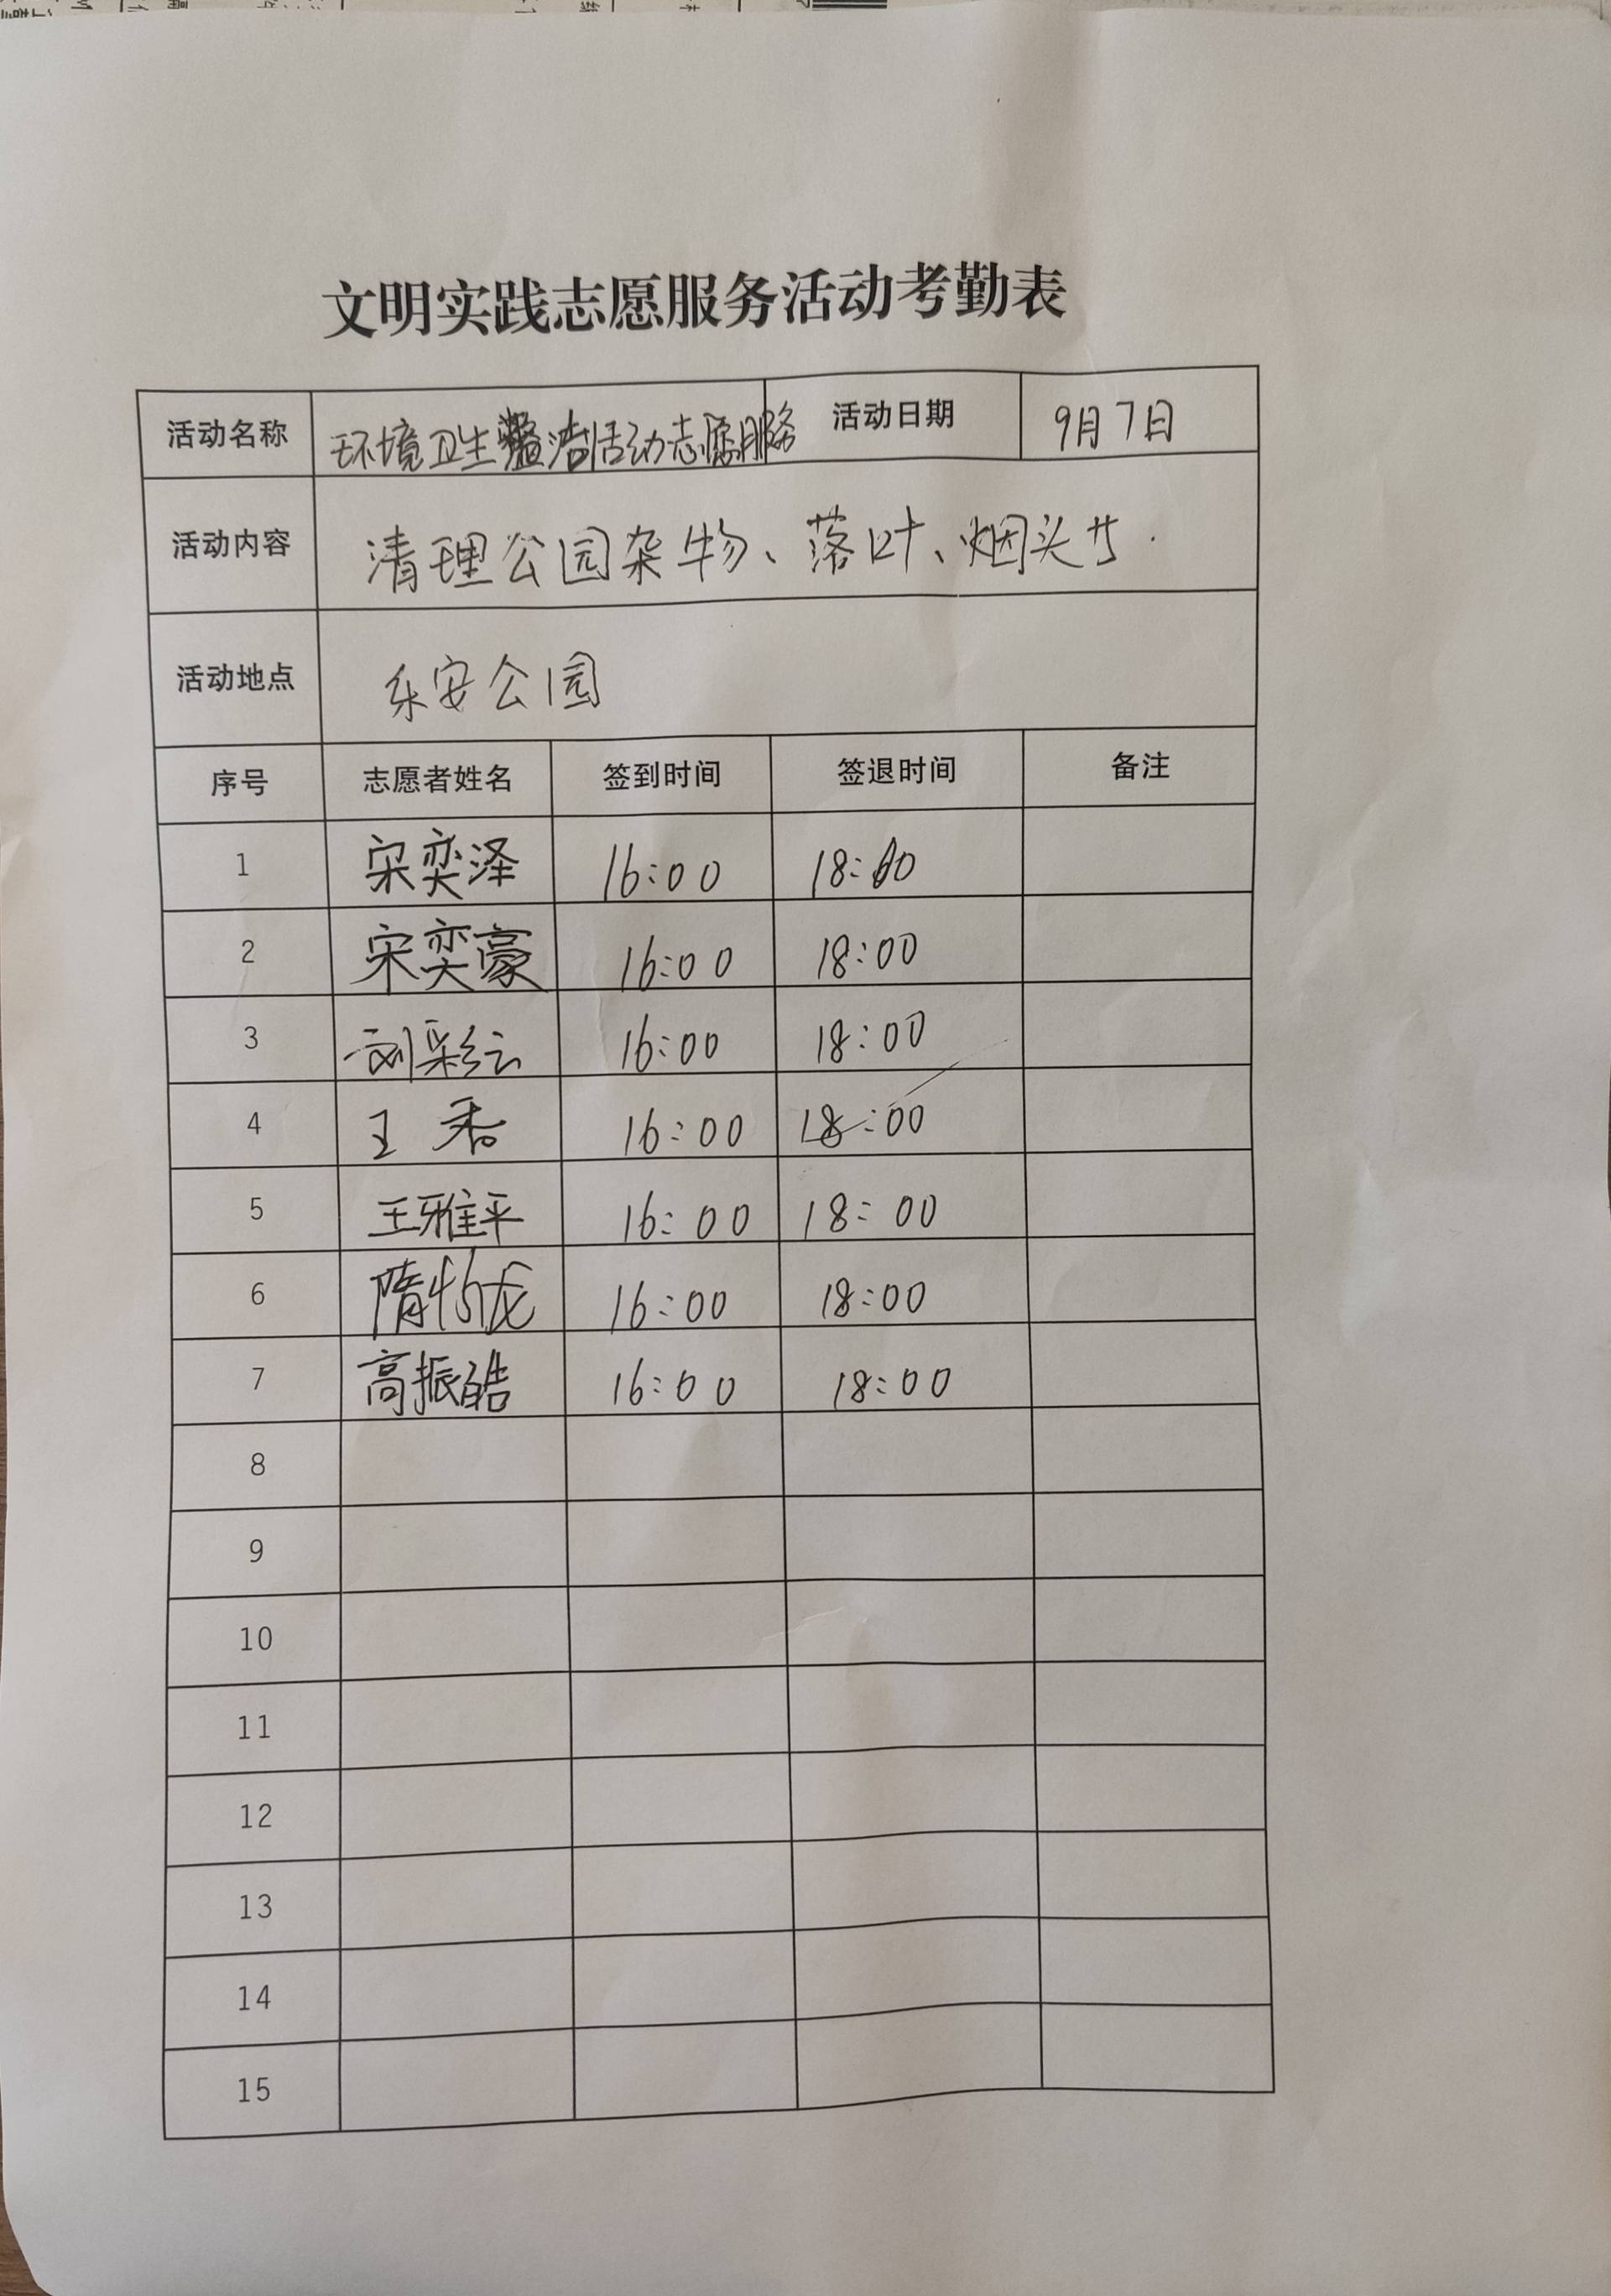 文明实践志愿服务活动考勤表
活动名称 环境卫生清洁活动志愿服务 活动日期 9月7日
活动内容 清理公园杂物、落叶、烟头等.
活动地点 东安公园
序号 志愿者姓名 签到时间 签退时间 备注
1 宋奕泽 16:00 18:00
2 宋奕豪 16:00 18:00
3 刘彩云 16:00 18:00
4 王香 16:00 18:00
5 王雅平 16:00 18:00
6 隋怕龙 16:00 18:00
7 高振皓 16:00 18:00
8
9
10
11
12
13
14
15